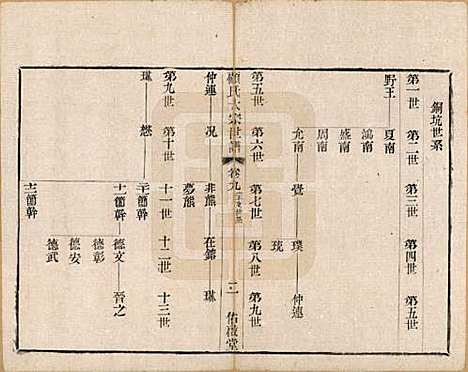 銅坑世系
第一世 第二世 第三世 第四世 第五世
野王 夏南
鴻南
盛南
周南
允南 㽞 璞 仲連
琉
第五世 第六世 第七世 第八世 第九世
顧氏大宗世譜 卷九 二 佑啟堂
仲連 况 非熊 在鎔 琳
夢熊
第九世 第十世 十一世 十二世 十三世
琳 懋 三箇幹
十一箇幹 德文 晉之
德彰
德安
十二箇幹 德武